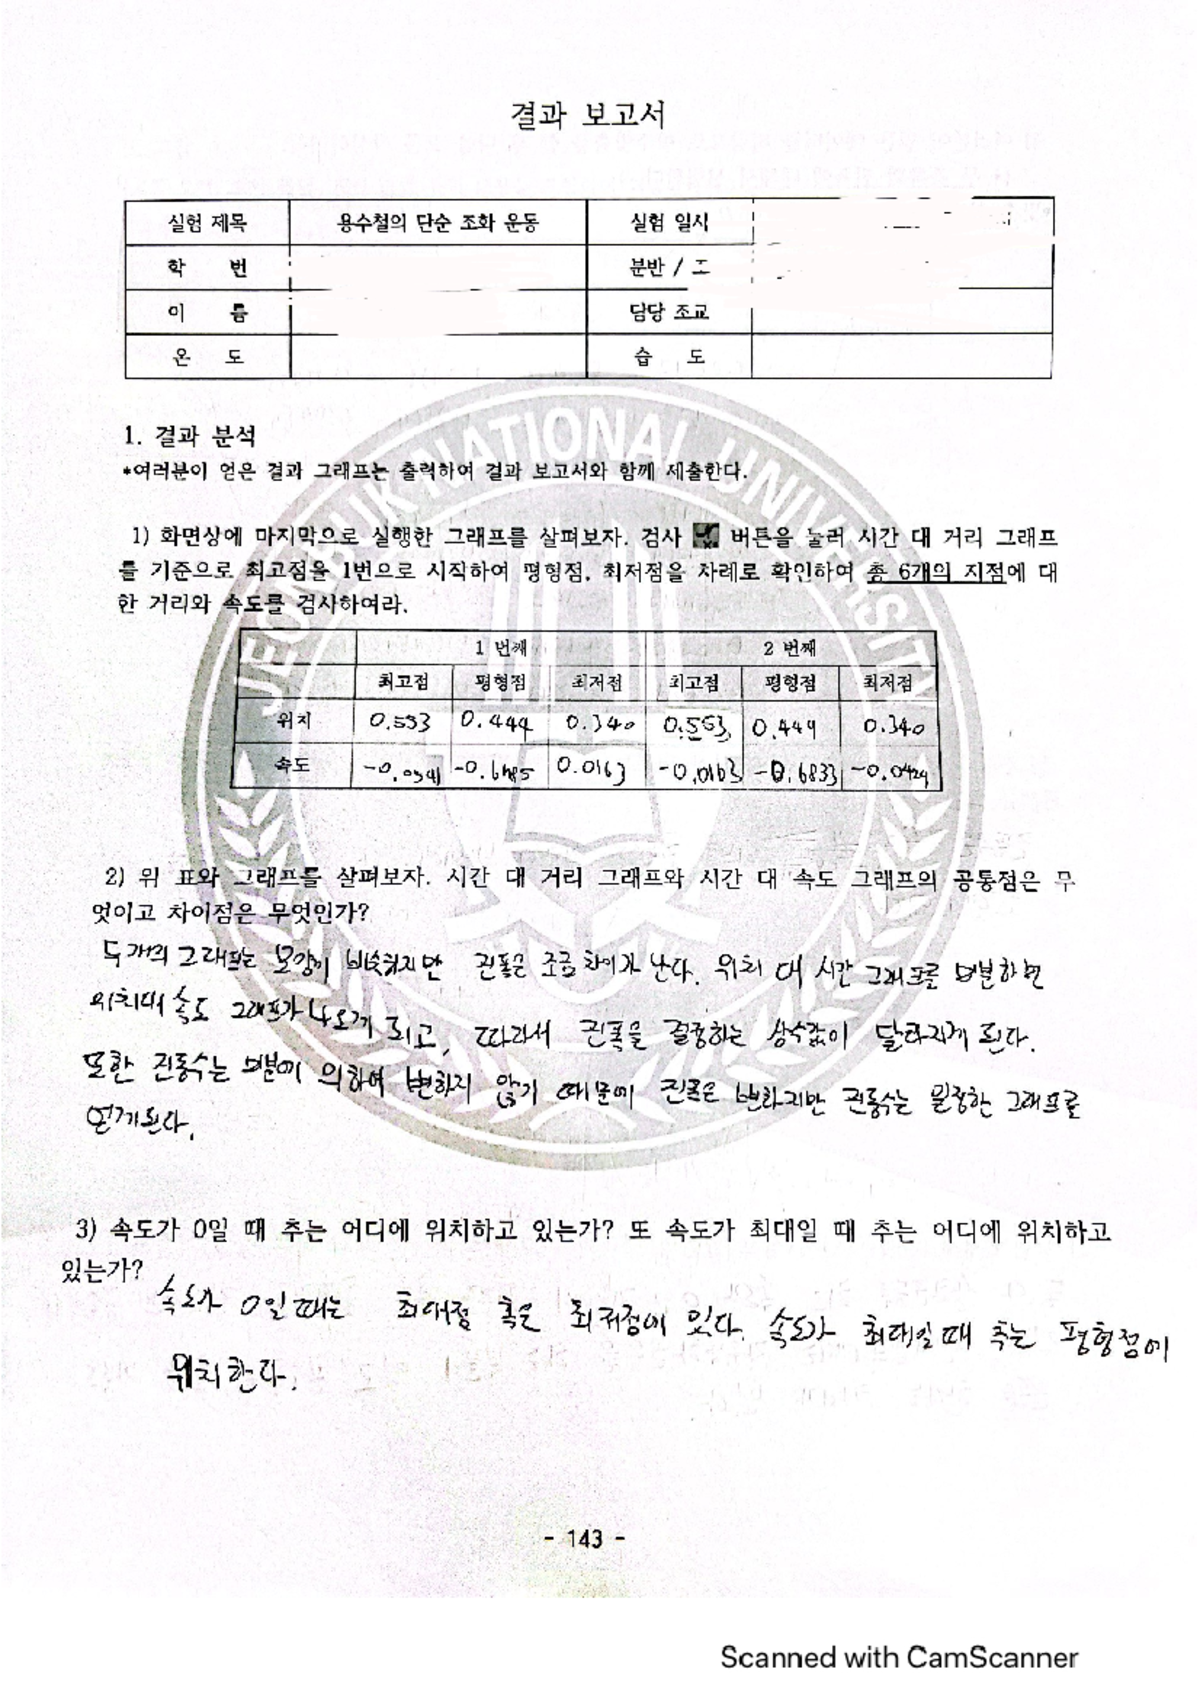 결과 보고서
실험 제목 용수철의 단순 조화 운동 실험 일시
학 번 분반 / 조
이 름 담당 조교
온 도 습 도
JEONBUK NATIONAL UNIVERSITY
1. 결과 분석
*여러분이 얻은 결과 그래프는 출력하여 결과 보고서와 함께 제출한다.
1) 화면상에 마지막으로 실행한 그래프를 살펴보자. 검사 버튼을 눌러 시간 대 거리 그래프
를 기준으로 최고점을 1번으로 시작하여 평형점, 최저점을 차례로 확인하여 총 6개의 지점에 대
한 거리와 속도를 검사하여라.
1 번째 2 번째
최고점 평형점 최저점 최고점 평형점 최저점
위치 0.553 0.444 0.340 0.553 0.444 0.340
속도 -0.0341 -0.6485 0.0163 -0.0163 -0.6833 -0.0424
2) 위 표와 그래프를 살펴보자. 시간 대 거리 그래프와 시간 대 속도 그래프의 공통점은 무
엇이고 차이점은 무엇인가?
두개의 그래프는 모양이 비슷하지만 진폭은 조금 차이가 난다. 위치 대 시간 그래프를 미분하면
위치대 속도 그래프가 나오게 되고, 따라서 진폭을 결정하는 상수값이 달라지게 된다.
또한 진동수는 미분에 의하여 변하지 않기 때문에 진폭은 변하지만 진동수는 일정한 그래프를
얻게된다.
3) 속도가 0일 때 추는 어디에 위치하고 있는가? 또 속도가 최대일 때 추는 어디에 위치하고
있는가?
속도가 0일때는 최대점 혹은 최저점에 있다. 속도가 최대일때 추는 평형점에
위치한다.
- 143 -
Scanned with CamScanner